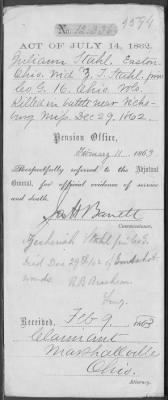 9594
No. 12,226
ACT OF JULY 14, 1862.
Juliann Stahl, Easton
Ohio. Wid Z. T. Stahl, priv
Co G. 16. Ohio Vols.
Killed in battle near Vicks-
burg Miss Dec 29, 1862.
Pension Office,
February 11 1863
Respectfully referred to the Adjutant
General, for official evidence of service
and death.
Jos H Barrett
Commissioner.
Zachariah Stahl
died Dec 29th 62 of Gunshot
wounds
Surg.
Received, Feb 9 1863
Claimant
Marshallville
Ohio.
Attorney.